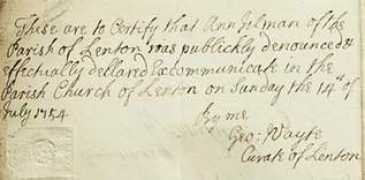 These are to Certify that Ann Gelman of the
Parish of Lenton was publickly denounced &
effectually declared Excommunicate in the
Parish Church of Lenton on Sunday the 14th of
July 1754
By me
Geo: Wayte
Curate of Lenton